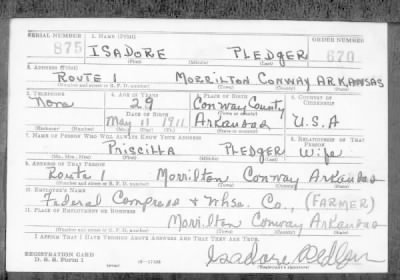 SERIAL NUMBER 1. NAME (Print) ORDER NUMBER
875 ISADORE PLEDGER 670
(First) (Middle) (Last)
2. ADDRESS (Print)
ROUTE 1 MORRILTON CONWAY ARKANSAS
(Number and street or R. F. D. number) (Town) (County) (State)
3. TELEPHONE 4. AGE IN YEARS 5. PLACE OF BIRTH 6. COUNTRY OF CITIZENSHIP
None 29 Conway County
DATE OF BIRTH (Town or county)
May 11 1911 Arkansas U.S.A
(Exchange) (Number) (Mo.) (Day) (Yr.) (State or country)
7. NAME OF PERSON WHO WILL ALWAYS KNOW YOUR ADDRESS 8. RELATIONSHIP OF THAT PERSON
Priscilla PLEDGER Wife
(Mr., Mrs., Miss) (First) (Middle) (Last)
9. ADDRESS OF THAT PERSON
Route 1 Morrilton Conway Arkansas
(Number and street or R. F. D. number) (Town) (County) (State)
10. EMPLOYER'S NAME
Federal Compress & Whse. Co., (FARMER)
11. PLACE OF EMPLOYMENT OR BUSINESS
Morrilton Conway Arkansas
(Number and street or R. F. D. number) (Town) (County) (State)
I AFFIRM THAT I HAVE VERIFIED ABOVE ANSWERS AND THAT THEY ARE TRUE.
REGISTRATION CARD
D. S. S. Form 1 Isadore
(Registrant's signature)